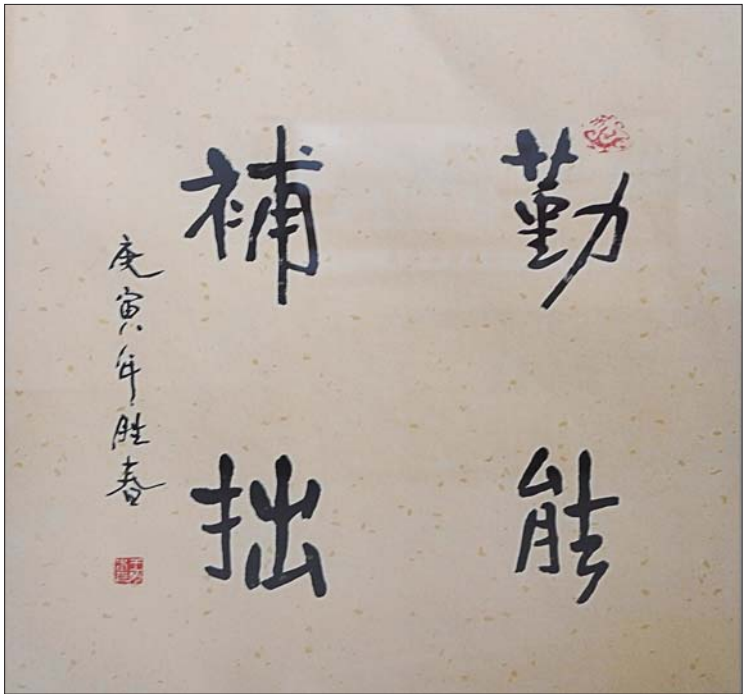 勤能
補拙
庚寅年胜春